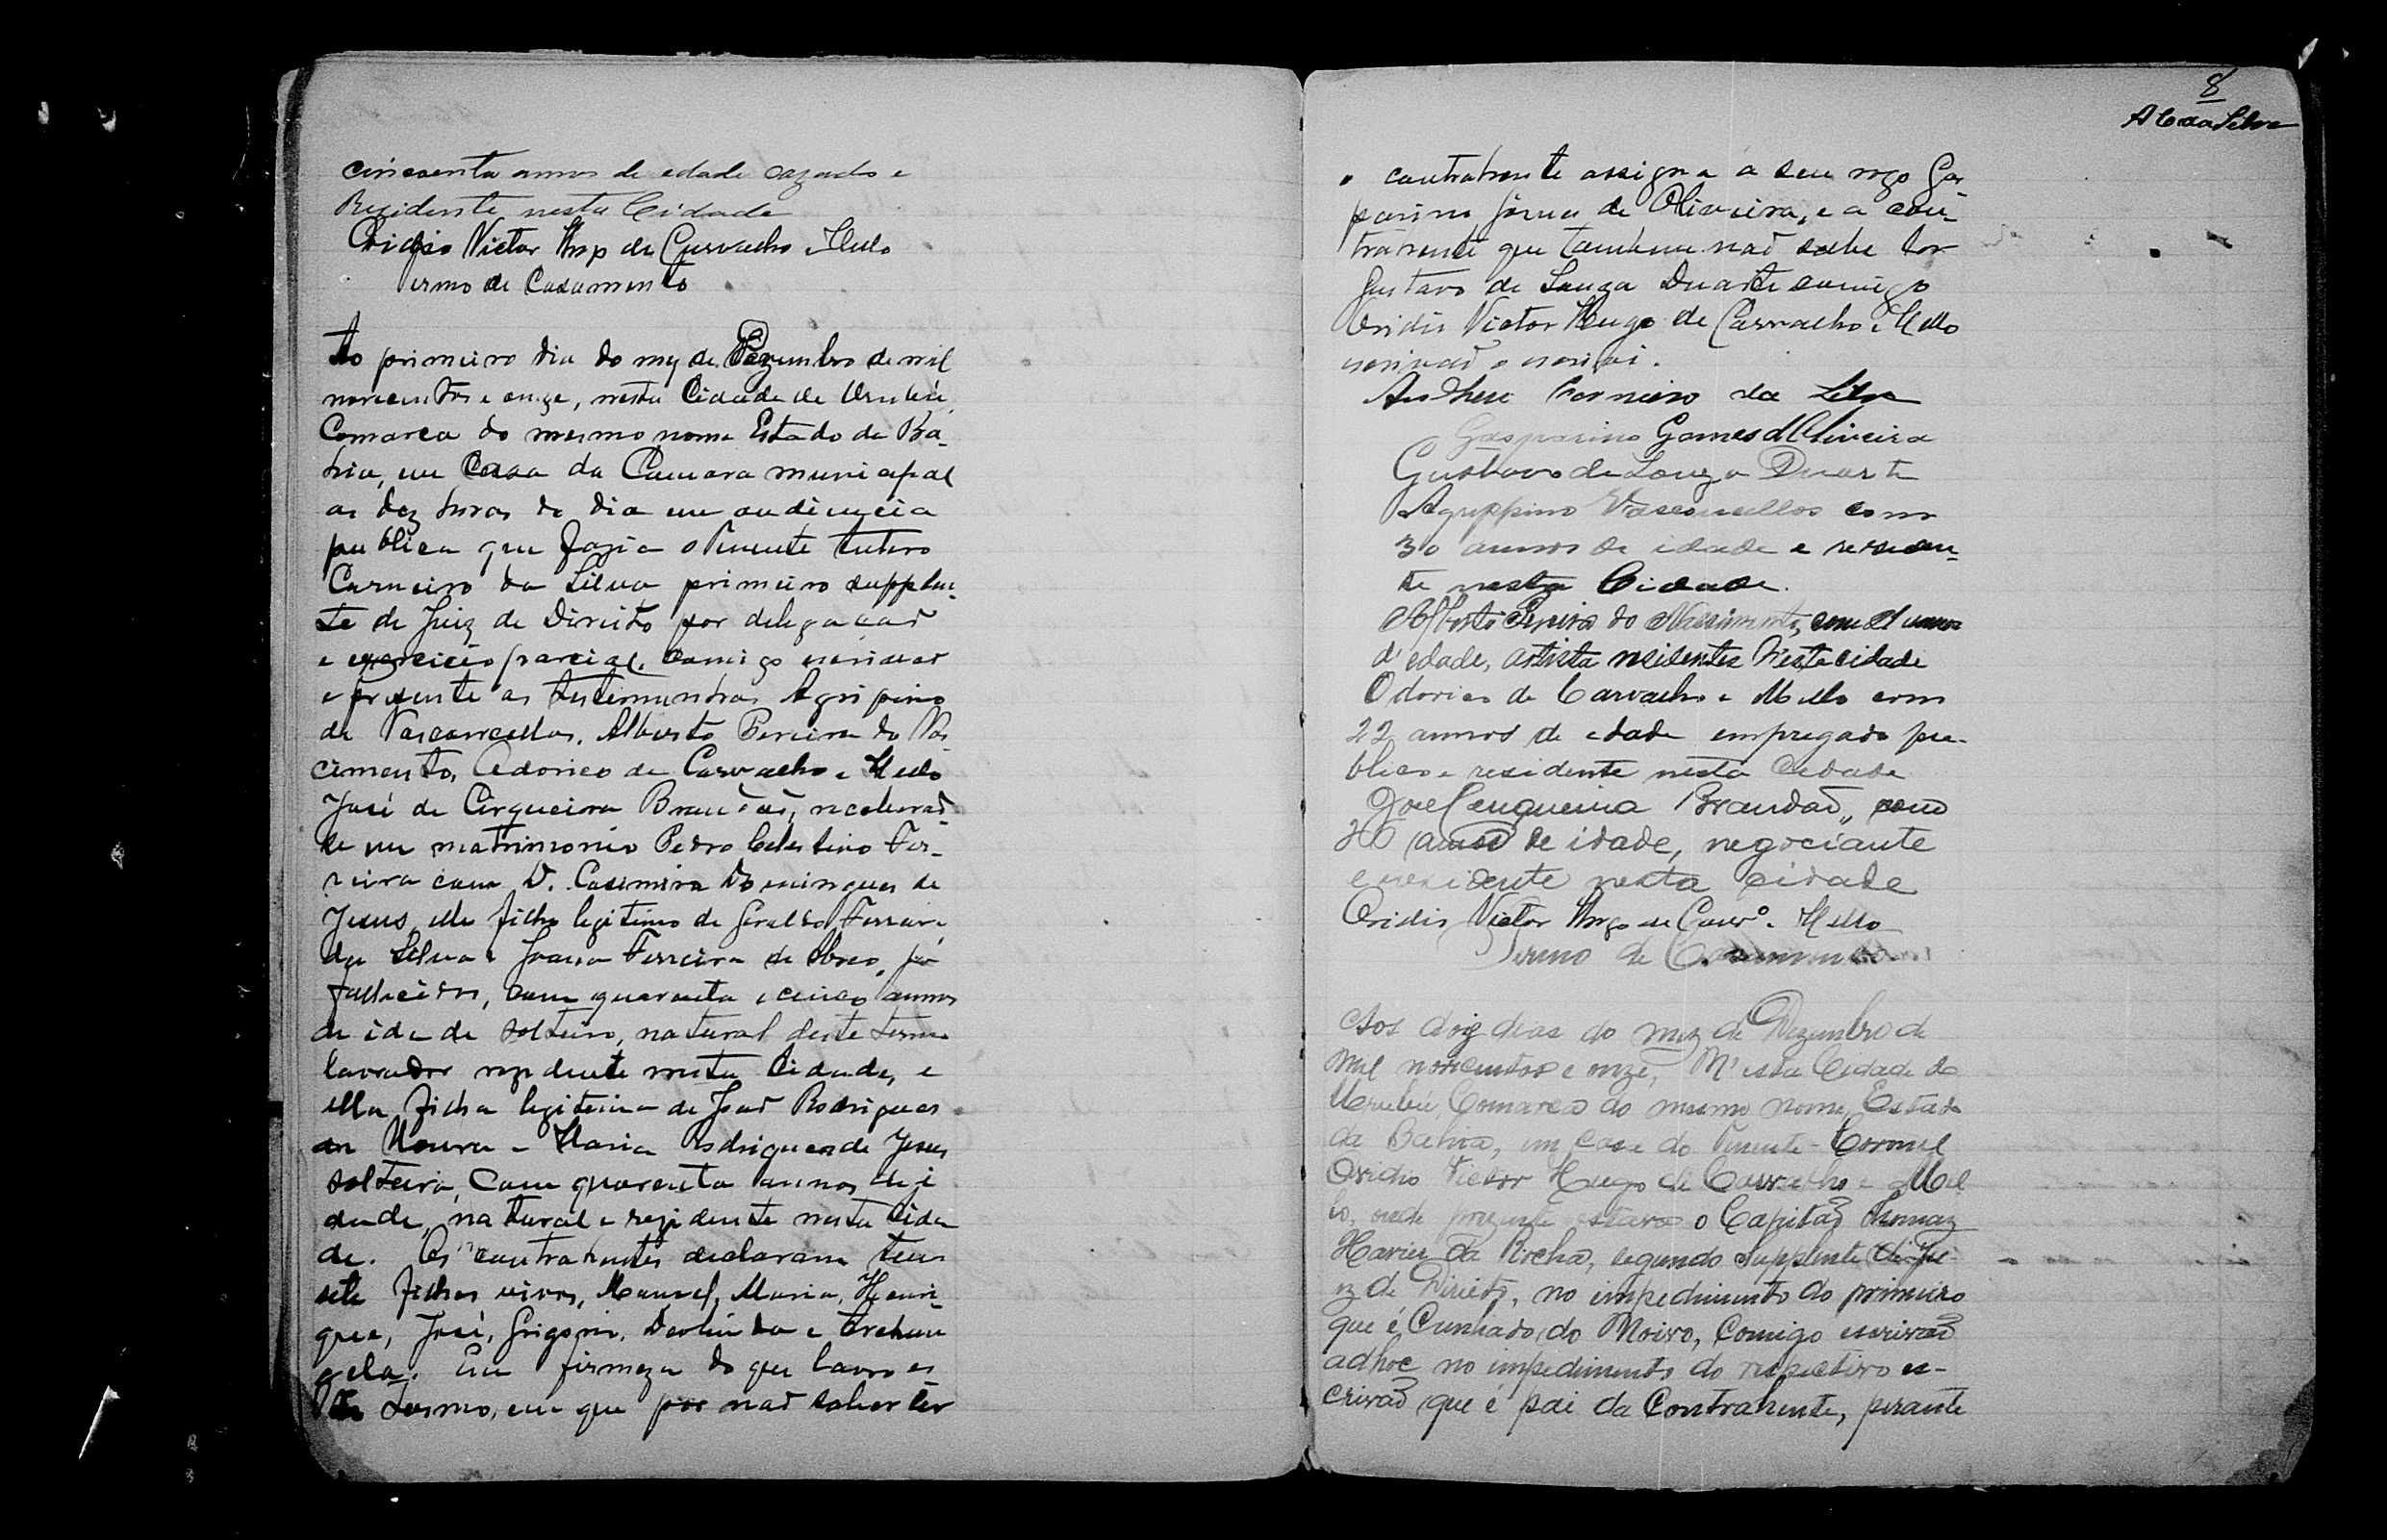 cincoenta annos de edade cazado e
Rezidente nesta Cidade
Ovidio Victor Hugo de Carvalho e Mello
Termo de Casamento
Ao primeiro dia do mez de Dezembro de mil
novecentos e onze, nesta Cidade de Urubú,
Comarca do mesmo nome Estado da Ba-
hia, em Casa da Camara municipal
as dez horas do dia em audiencia
publica que fazia o Tenente Anthero
Carneiro da Silva primeiro supplen-
te de Juiz de Direito por delegacaõ
e exercicio parcial, comigo escrivaõ
e prezente as testemunhas Agripino
de Vasconcellos, Alberto Pereira do Nas-
cimento, Odorico de Carvalho e Mello
José de Cirqueira Brandaõ, receberaõ-
se em matrimonio Pedro Celestino Fer-
reira com D. Casimira Domingues de
Jesus, elle filho legitimo de Geraldo Ferreira
da Silva e Joana Ferreira de Abreo, já
fallecidos, com quarenta e cinco annos
de idade solteiro, natural deste termo
lavrador rezidente nesta Cidade, e
ella filha legitima de Joaõ Rodrigues
de Moura e Maria Rodrigues de Jesus
solteira, com quarenta annos de i
dade, natural e rezidente nesta Cida
de. Os contrahentes declararam ter
sete filhos vivos, Manoel, Maria, Henri-
que, José, Grigorio, Deolinda e Archan
gela. Em firmeza do que lavro es
te termo, em que por naõ saber ler
8
A C da Silva
o contrahente assigna a seu rogo Gas-
parino Gomes de Oliveira, e a con-
trahente que tambem naõ sabe ler
Gustavo de Souza Duarte comigo
Ovidio Victor Hugo de Carvalho e Mello
escrivaõ o escrevi.
Anthero Carneiro da Silva
Gasparino Gomes d'Oliveira
Gustavo de Souza Duarte
Agrippino Vasconcellos com
30 annos de idade e residen-
te nesta Cidade.
Alberto Pereira do Nascimento, com annos
d'edade, artista residentes n'esta cidade
Odorico de Carvalho e Mello com
22 annos de edade empregado pu-
blico e residente nesta Cidade
José Cerqueira Brandaõ, com
20 annos de idade, negociante
e rezidente nesta cidade
Ovidio Victor Hugo de Carvº. e Mello
Termo de Casamento
Aos doiz dias do mez de Dezembro de
mil novecentos e onze, N'esta Cidade do
Urubú, Comarca do mesmo nome, Estado
da Bahia, em casa do Tenente-Coronel
Ovidio Victor Hugo de Carvalho e Mel
lo, onde prezente estava o Capitaõ Thomaz
Xavier da Rocha, segundo Supplente de Ju-
iz de Direito, no impedimento do primeiro
que é Cunhado do Noivo, Comigo escrivaõ
adhoc no impedimento do respectivo es-
crivaõ que é pai da Contrahente, perante